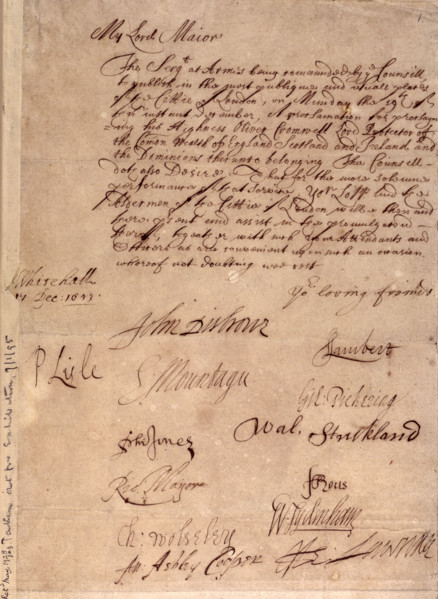 My Lord Maior
The Sergt at Armes being commanded by ye Councill
to publish in the most publique and usuall places
of the Cittie of London, on Munday the 19th of
this instant December, A proclamation for proclaym
ing his Highness Oliver Cromwell Lord Protector of
the Comon Wealth of England Scotland and Ireland and
the Dominions thereunto belonging The Councill
doth also Desire That for the more solemne
performance of that Service, Yor Lopp and the
Aldermen of the Cittie of London will be then and
there present and assist in the
together with such your Attendants and
Officers as are convenient upon such an occasion
whereof not doubting wee rest
Yor loving friends
Whitehall
Dec: 1653
John Disbrowe
Lambert
P Lisle
E Mountagu
Gil: Pickering
Wal. Strickland
Phi Jones
Ric. Maijor
F Rous
W: Sydenham
Ch: Wolseley
An: Ashley Cooper
He: Lawrence